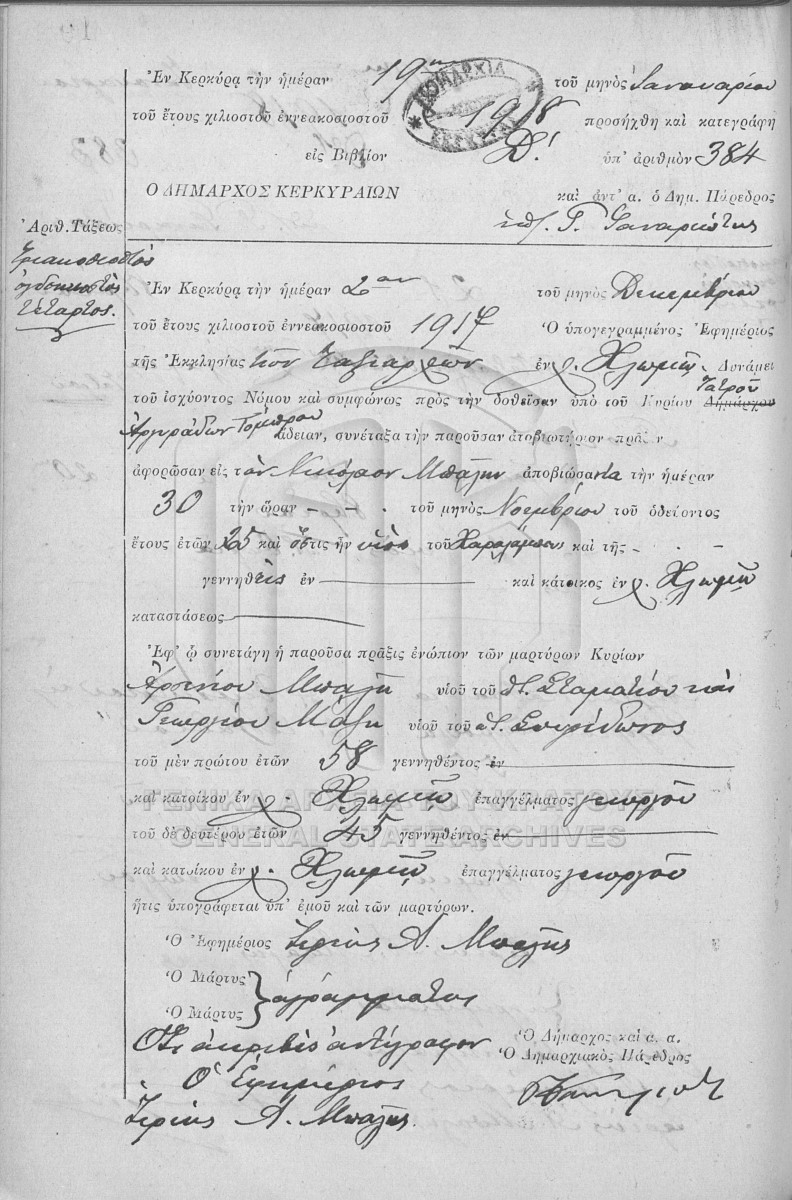 Ἐν Κερκύρᾳ τὴν ἡμέραν 19ην τοῦ μηνὸς Ἰανουαρίου
τοῦ ἔτους χιλιοστοῦ ἐννεακοσιοστοῦ 1918 προσήχθη καὶ κατεγράφη
εἰς Βιβλίον Δ! ὑπ' ἀριθμὸν 384
Ο ΔΗΜΑΡΧΟΣ ΚΕΡΚΥΡΑΙΩΝ καὶ ἀντ' α. ὁ Δημ. Πάρεδρος
Ἀριθ. Τάξεως
τριακοσιοστὸς
ὀγδοηκοστὸς
τέταρτος.
Ἐν Κερκύρᾳ τὴν ἡμέραν 2αν τοῦ μηνὸς Δεκεμβρίου
τοῦ ἔτους χιλιοστοῦ ἐννεακοσιοστοῦ 1917 Ὁ ὑπογεγραμμένος Ἐφημέριος
τῆς Ἐκκλησίας τῶν Ταξιαρχῶν ἐν χ. Χλωμῷ. Δυνάμει
τοῦ ἰσχύοντος Νόμου καὶ συμφώνως πρὸς τὴν δοθεῖσαν ὑπὸ τοῦ Κυρίου Δημάρχου
Ἰατροῦ
Ἀργυράδων ἄδειαν, συνέταξα τὴν παροῦσαν ἀποβιωτήριον πρᾶξιν
ἀφορῶσαν εἰς τὸν Νικόλαον Μπαλῆν ἀποβιώσαντα τὴν ἡμέραν
30 τὴν ὥραν - - . τοῦ μηνὸς Νοεμβρίου τοῦ ὁδεύοντος
ἔτους ἐτῶν 25 καὶ ὅστις ἦν υἱὸς τοῦ Χαραλάμπου καὶ τῆς - . -
γεννηθεὶς ἐν καὶ κάτοικος ἐν χ. Χλωμῷ
καταστάσεως
Ἐφ' ᾧ συνετάγη ἡ παροῦσα πρᾶξις ἐνώπιον τῶν μαρτύρων Κυρίων
Ἀρσενίου Μπαλῆ υἱοῦ τοῦ ποτ. Σταματίου καὶ
Γεωργίου Μάζη υἱοῦ τοῦ ποτ. Σπυρίδωνος
τοῦ μὲν πρώτου ἐτῶν 58 γεννηθέντος ἐν
καὶ κατοίκου ἐν χ. Χλωμῷ ἐπαγγέλματος γεωργοῦ
ΓΕΝΙΚΑ ΑΡΧΕΙΑ ΤΟΥ ΚΡΑΤΟΥΣ
τοῦ δὲ δευτέρου ἐτῶν 45 γεννηθέντος ἐν
GENERAL STATE ARCHIVES
καὶ κατοίκου ἐν χ. Χλωμῷ ἐπαγγέλματος γεωργοῦ
ἥτις ὑπογράφεται ὑπ' ἐμοῦ καὶ τῶν μαρτύρων.
Ὁ Ἐφημέριος Ἱερεὺς Α. Μπαλῆς
Ὁ Μάρτυς
Ὁ Μάρτυς } ἀγράμματοι
Ὅτι ἀκριβὲς ἀντίγραφον
Ὁ Δήμαρχος καὶ α. α.
Ὁ Δημαρχιακὸς Πάρεδρος
Ὁ Ἐφημέριος
Ἱερεὺς Α. Μπαλῆς